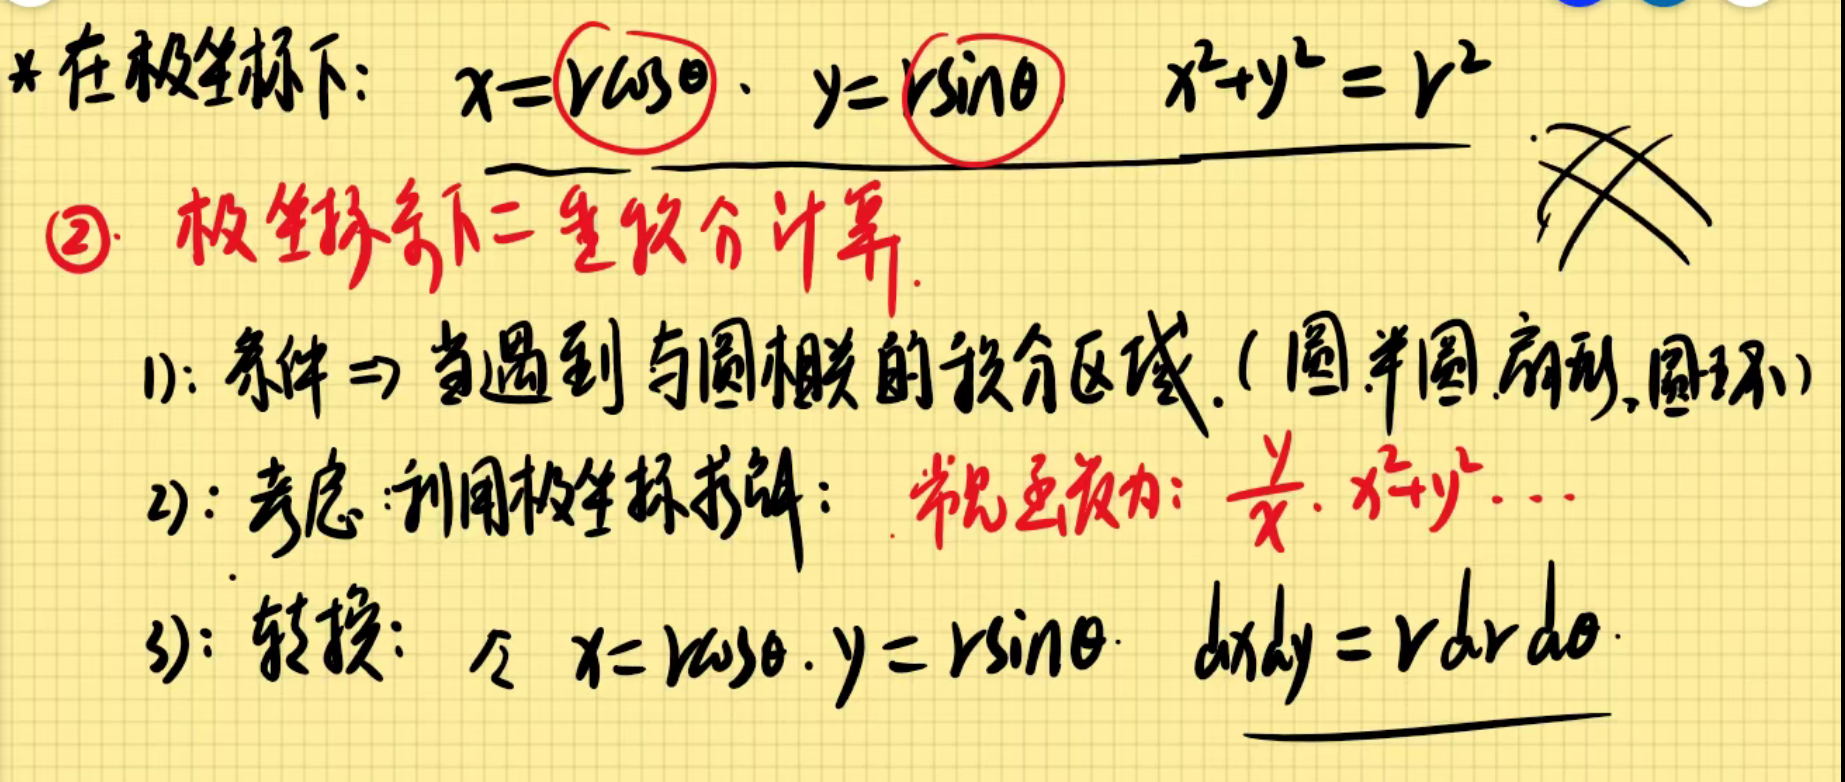 * 在极坐标下: x=rcosθ. y=rsinθ. x²+y²=r²
②. 极坐标系下二重积分计算.
1): 条件 ⇒ 当遇到与圆相关的积分区域.(圆.半圆.扇形、圆环)
2): 考虑:利用极坐标求解: 常见函数为: y/x. x²+y²...
3): 转换: 令 x=rcosθ. y=rsinθ. dxdy=rdrdθ.